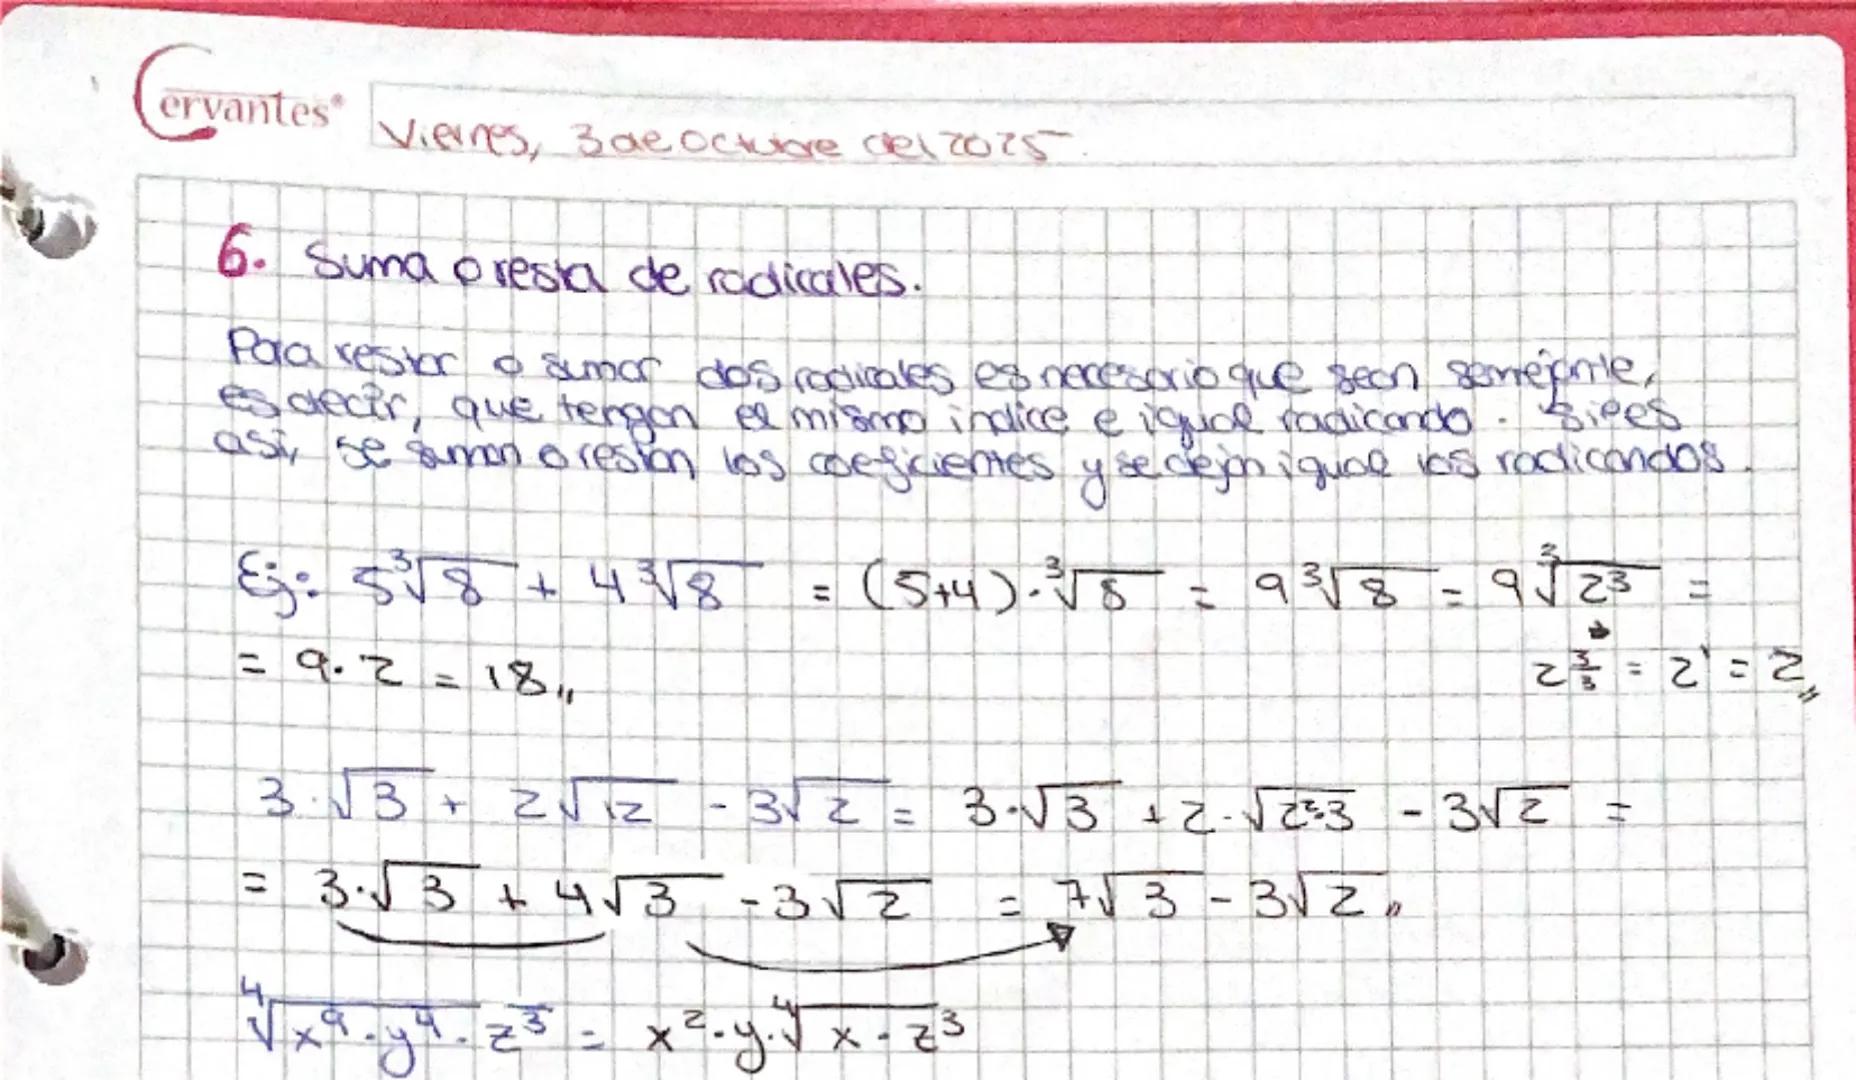 Cervantes®
Viernes, 3 de octubre del 2025.
6. Suma o resta de radicales.
Para restar o sumar dos radicales es necesario que sean semejante,
es decir, que tengan el mismo índice e igual radicando. Si es
así, se suman o restan los coeficientes y se dejan igual los radicandos.
Ej: 5∛8 + 4∛8 = (5+4)·∛8 = 9∛8 = 9∛2³ =
= 9·2 = 18,,
2^(3/3) = 2¹ = 2,,
3·√3 + 2√12 - 3√2 = 3·√3 + 2·√(2²·3) - 3√2 =
= 3·√3 + 4√3 - 3√2 = 7√3 - 3√2,,
∜(x⁹·y⁴·z³) = x²·y·∜(x·z³)